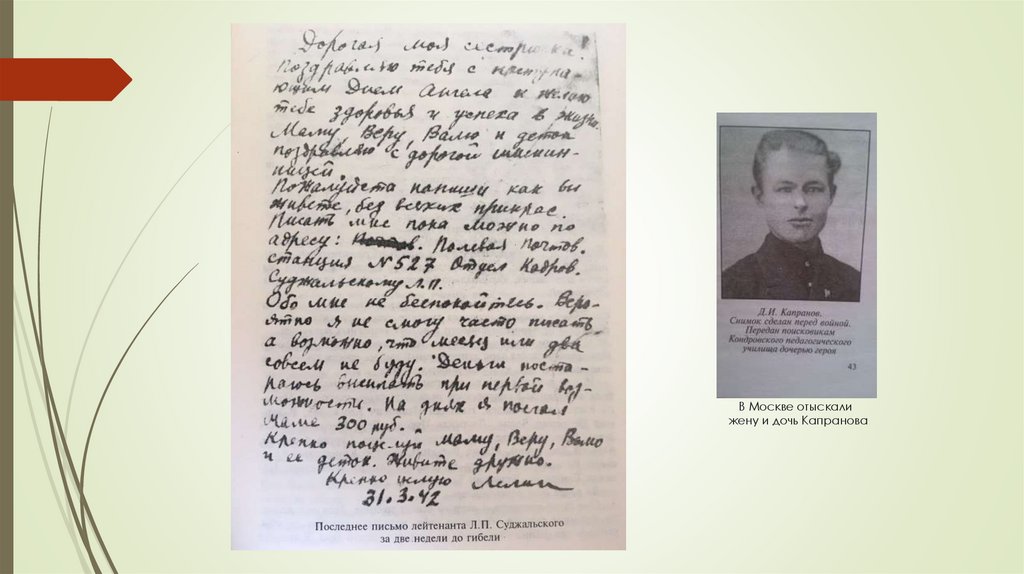 Дорогая моя сестричка!
Поздравляю тебя с наступа-
ющим Днем Ангела и желаю
тебе здоровья и успеха в жизни.
Маму, Веру, Валю и деток
поздравляю с дорогой имянин-
ницей.
Пожалуйста напиши как вы
живете, без всяких прикрас.
Писать мне пока можно по
адресу: Полевая почтов.
станция №527 Отдел Кадров.
Суджальскому Л.П.
Обо мне не беспокойтесь. Веро-
ятно я не смогу часто писать
а возможно, что месяц или два
совсем не буду. Деньги поста-
раюсь высылать при первой воз-
можности. На днях я послал
маме 300 руб.
Крепко поцелуй маму, Веру, Валю
и ее деток. Живите дружно.
Крепко целую
31.3.42
Последнее письмо лейтенанта Л.П. Суджальского
за две недели до гибели
Д.И. Капранов.
Снимок сделан перед войной.
Передан поисковикам
Кондровского педагогического
училища дочерью героя
43
В Москве отыскали
жену и дочь Капранова